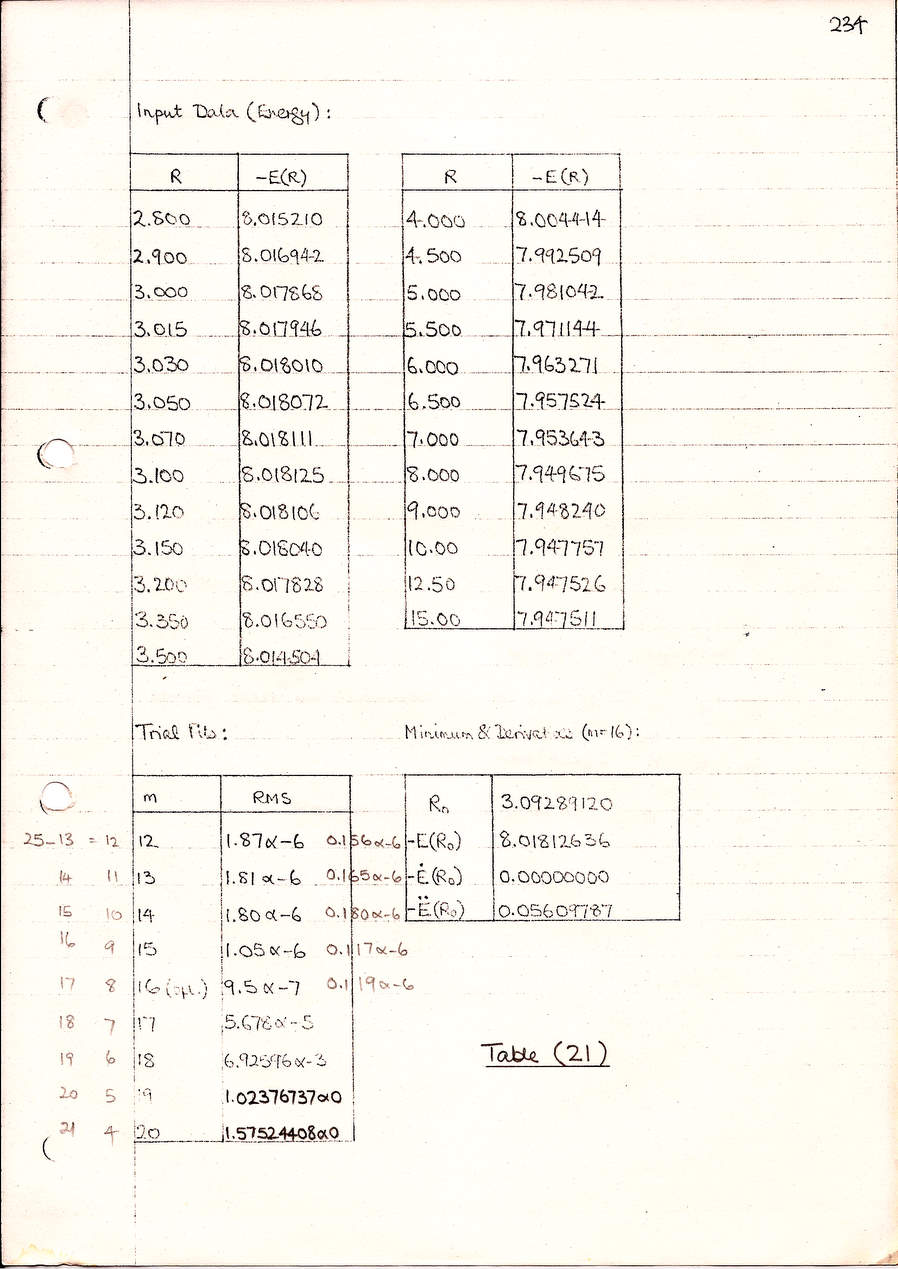 234
Input Data (Energy) :
R -E(R)
2.800 8.015210
2.900 8.016942
3.000 8.017868
3.015 8.017946
3.030 8.018010
3.050 8.018072
3.070 8.018111
3.100 8.018125
3.120 8.018106
3.150 8.018040
3.200 8.017828
3.350 8.016550
3.500 8.014504
R -E(R)
4.000 8.004414
4.500 7.992509
5.000 7.981042
5.500 7.971144
6.000 7.963271
6.500 7.957524
7.000 7.953643
8.000 7.949675
9.000 7.948240
10.00 7.947757
12.50 7.947526
15.00 7.947511
Trial Fits :
m RMS
25-13 = 12 12 1.87α-6 0.156α-6
14 11 13 1.81α-6 0.165α-6
15 10 14 1.80α-6 0.180α-6
16 9 15 1.05α-6 0.117α-6
17 8 16 (opt.) 9.5α-7 0.119α-6
18 7 17 5.678α-5
19 6 18 6.92596α-3
20 5 19 1.02376737α0
21 4 20 1.57524408α0
Minimum & Derivatives (m=16) :
R₀ 3.09289120
-E(R₀) 8.01812636
-Ė(R₀) 0.00000000
-Ë(R₀) 0.05609787
Table (21)